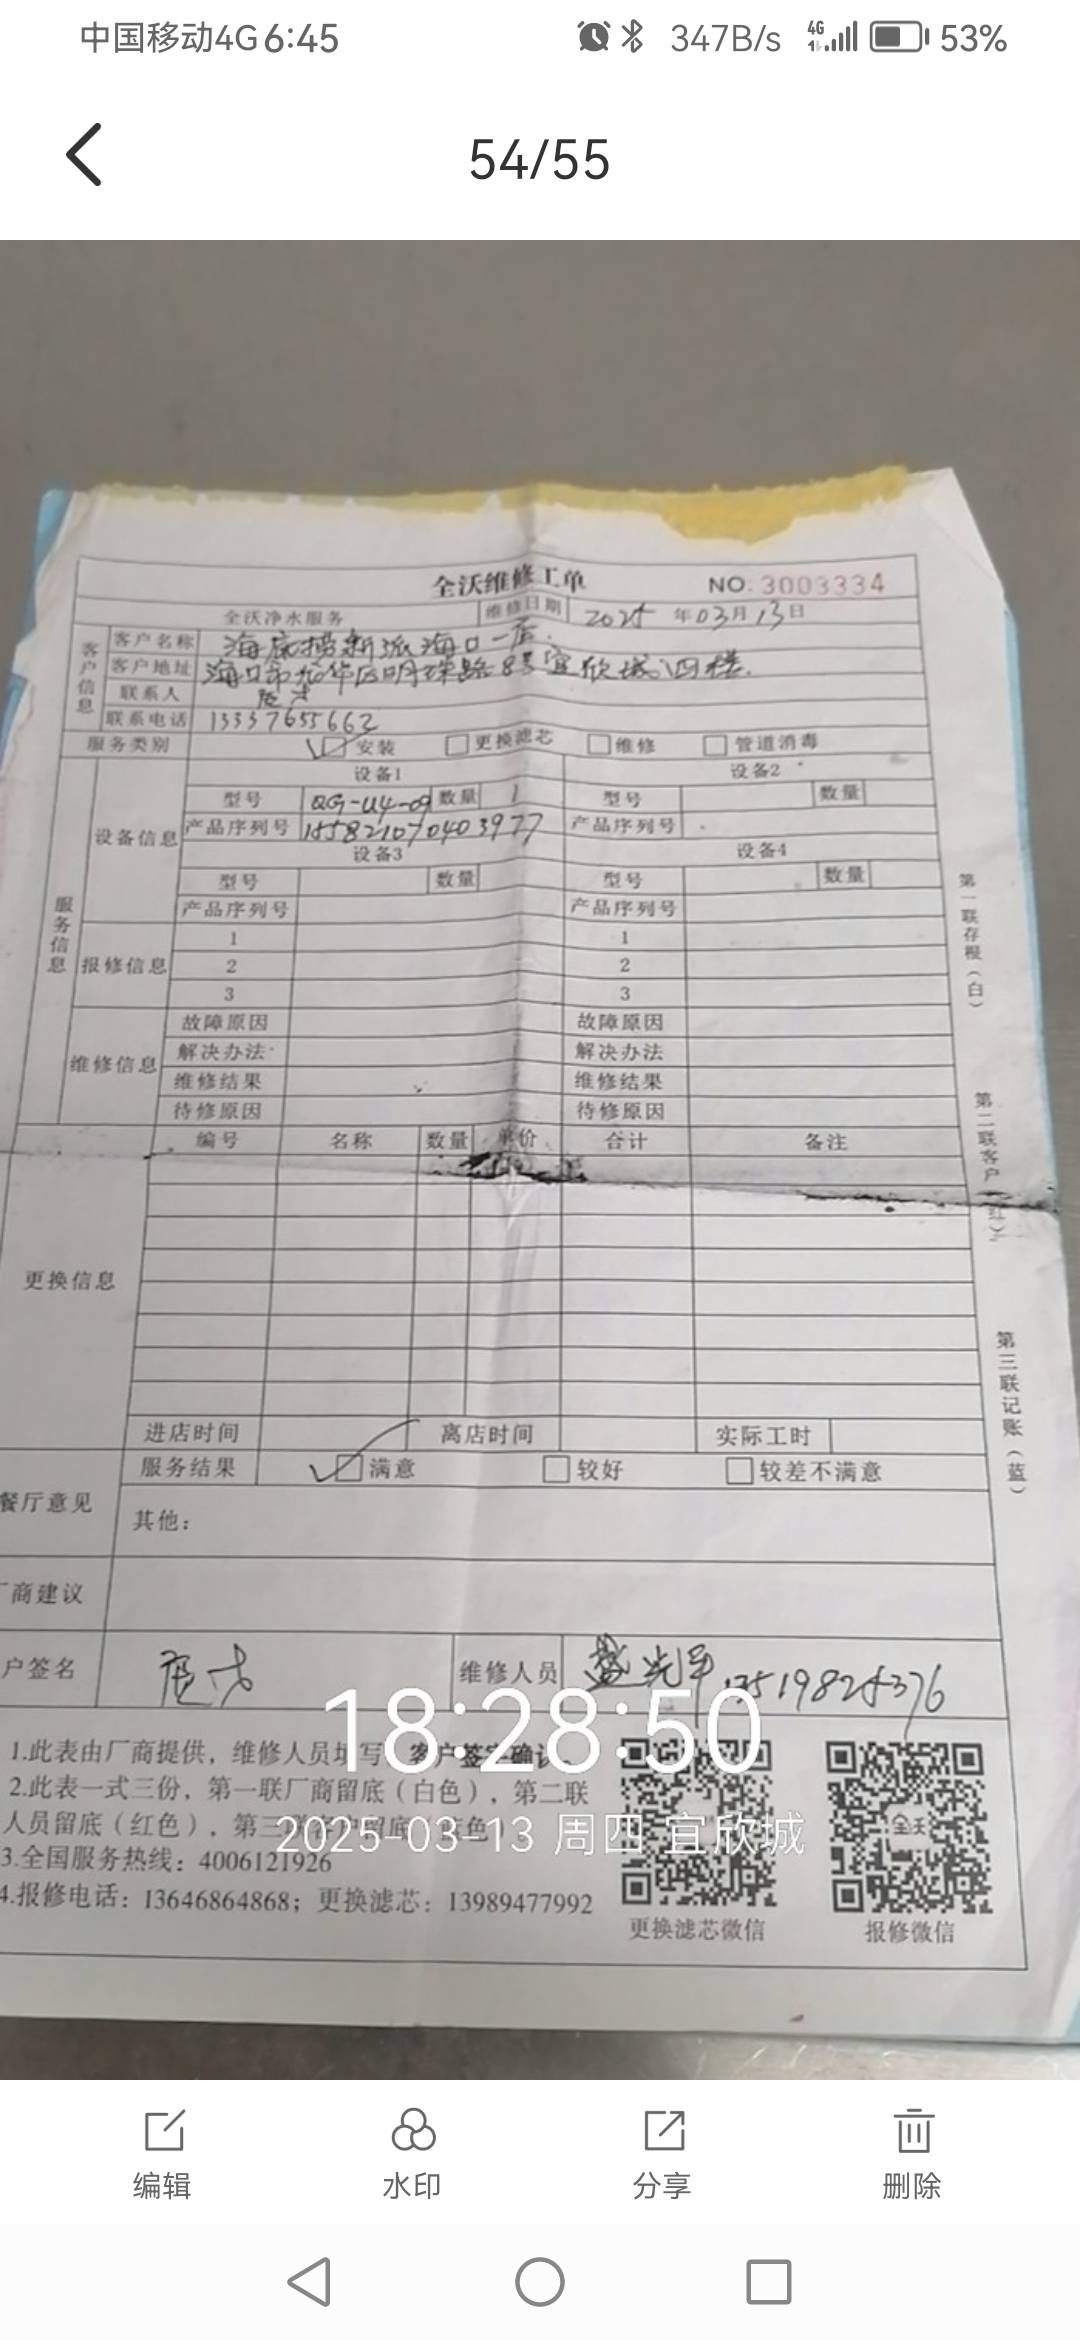 中国移动4G 6:45 347B/s 4G 53%
54/55
全沃维修工单 NO. 3003334
全沃净水服务 维修日期 2025 年 03 月 13 日
客户信息
客户名称 海底捞新派海口一店.
客户地址 海口市龙华区明珠路8号宜欣城四楼.
联系人
联系电话 13337655662
服务类别 安装 更换滤芯 维修 管道消毒
服务信息
设备信息
设备1 设备2
型号 QG-U4-09 数量 1 型号 数量
产品序列号 155821070403977 产品序列号
设备3 设备4
型号 数量 型号 数量
产品序列号 产品序列号
报修信息
1 1
2 2
3 3
维修信息
故障原因 故障原因
解决办法 解决办法
维修结果 维修结果
待修原因 待修原因
更换信息
编号 名称 数量 单价 合计 备注
进店时间 离店时间 实际工时
餐厅意见
服务结果 满意 较好 较差不满意
其他:
厂商建议
户签名 维修人员 盛光军 13519825376
1.此表由厂商提供，维修人员填写，客户签字确认。
2.此表一式三份，第一联厂商留底（白色），第二联
人员留底（红色），第三联客户留底 蓝色
3.全国服务热线：4006121926
4.报修电话：13646864868；更换滤芯：13989477992
全沃
更换滤芯微信 报修微信
第一联存根（白）
第二联客户（红）
第三联记账（蓝）
18:28:50
2025-03-13 周四 宜欣城
编辑 水印 分享 删除